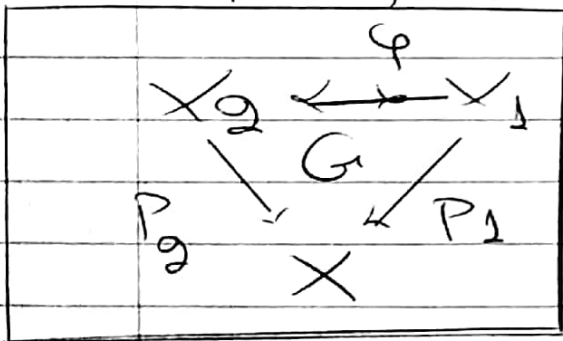 φ
X2 X1
G
P2 P1
X